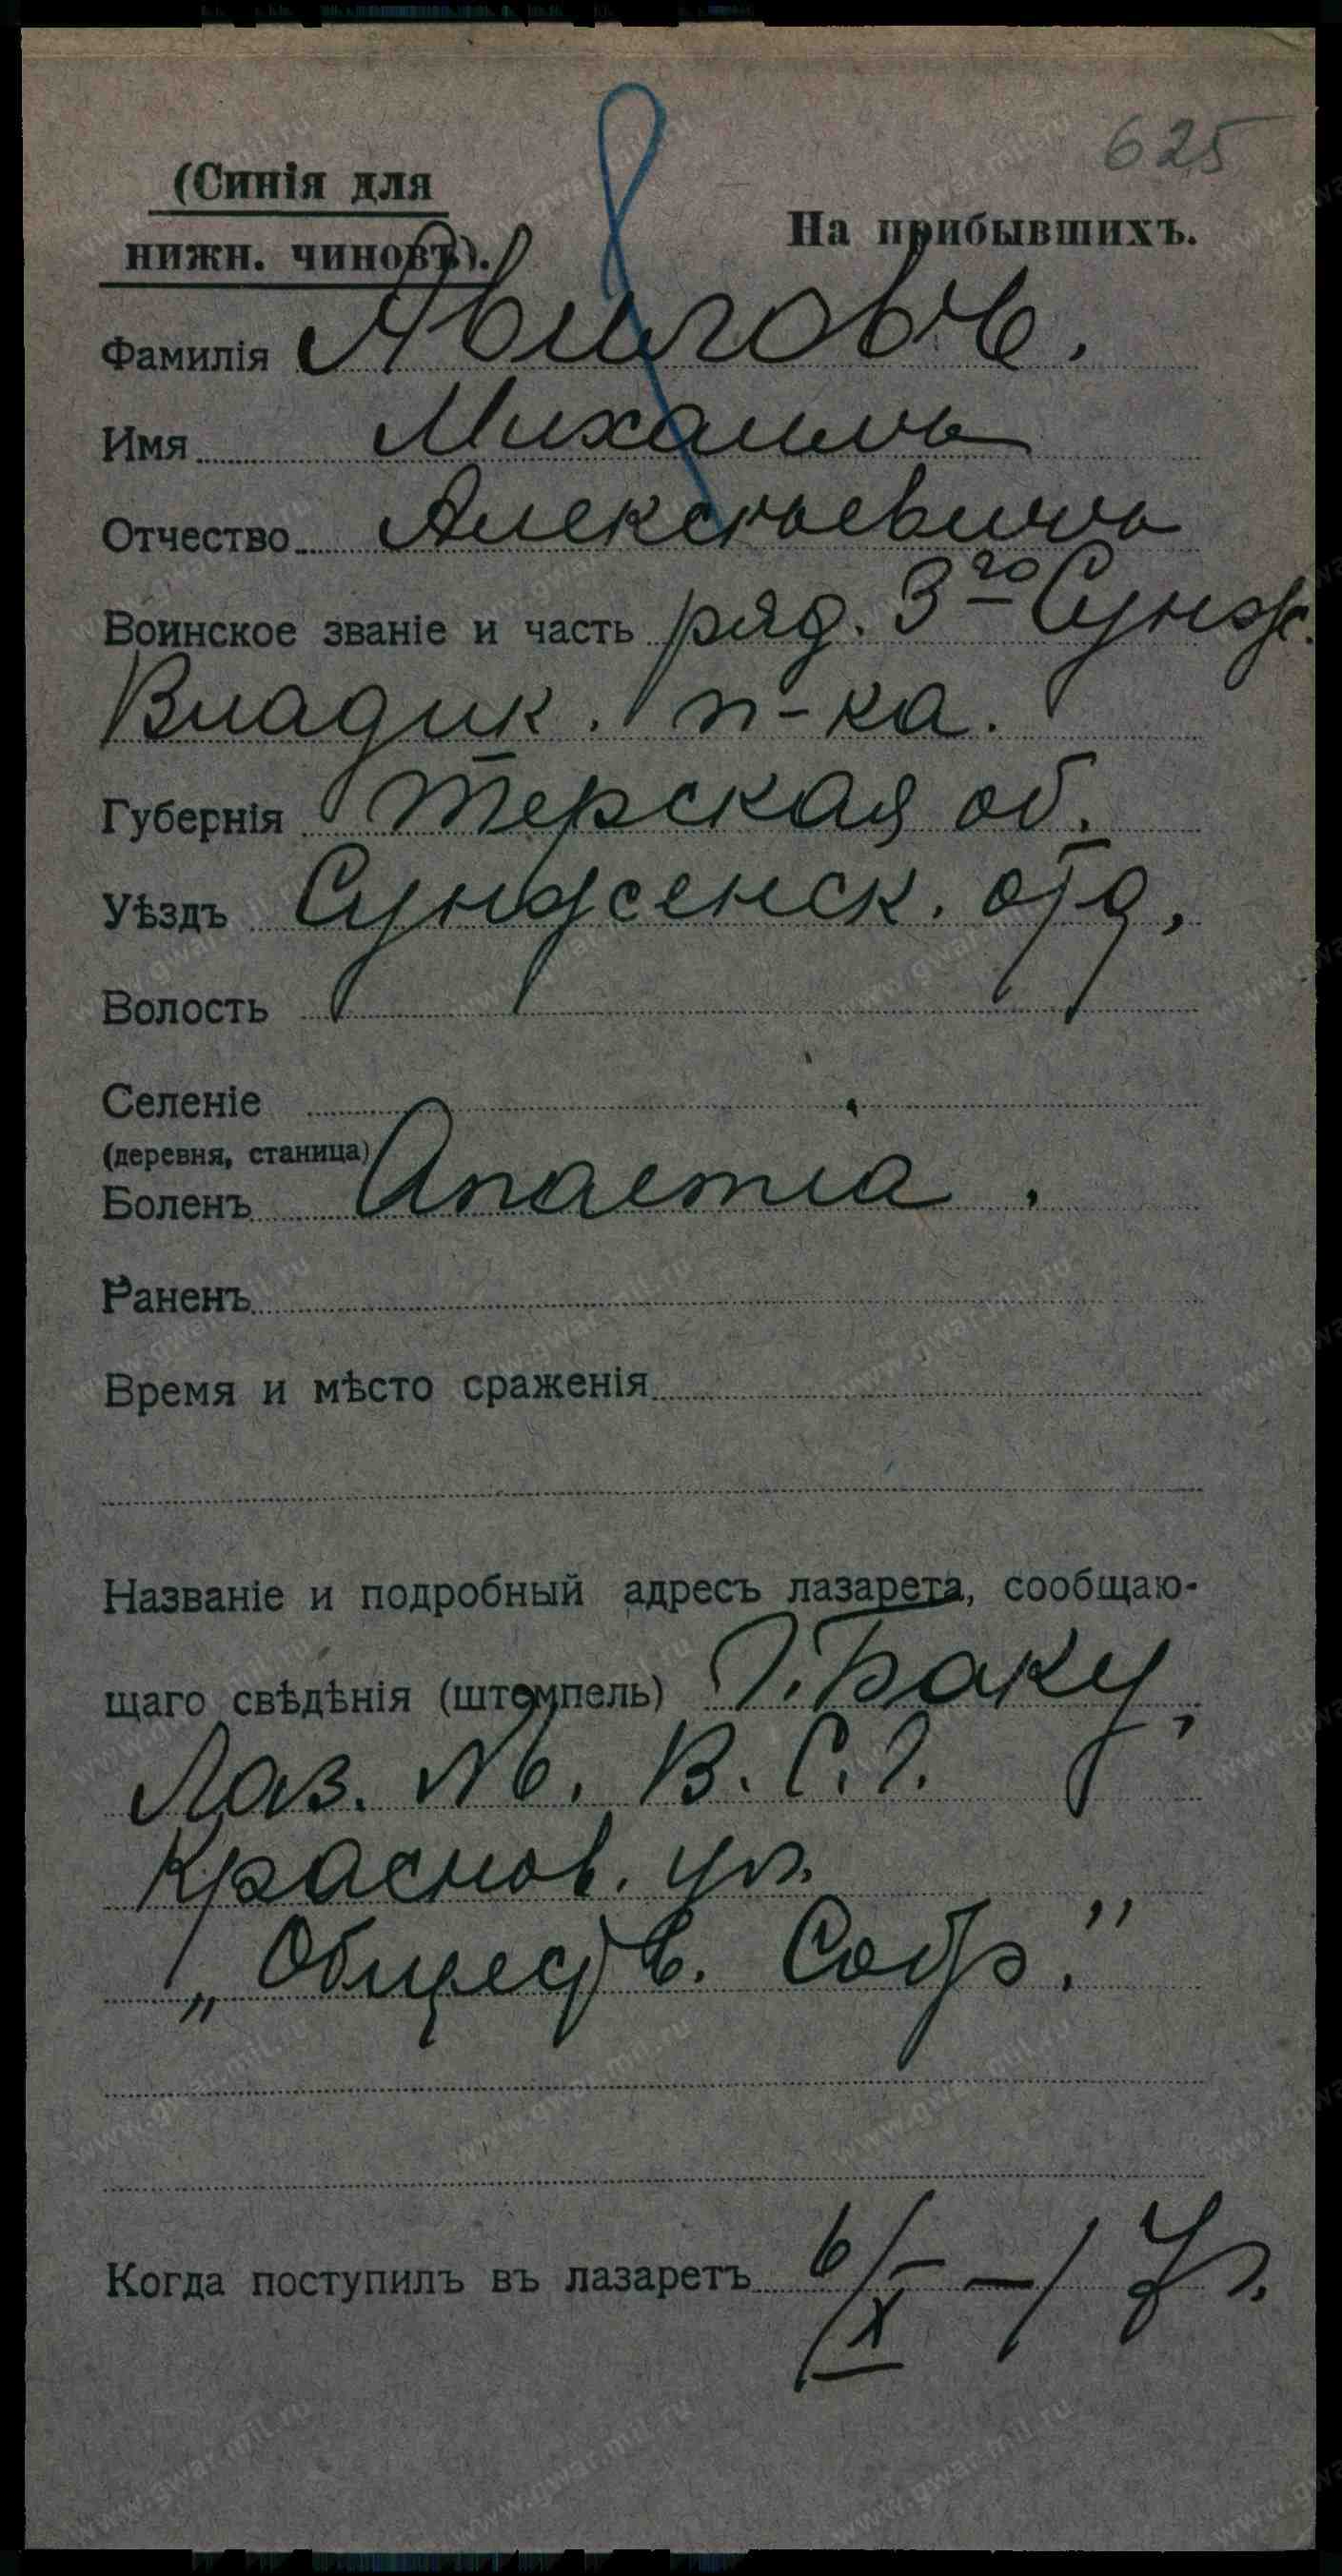 625
(Синія для
нижн. чиновъ).
На прибывшихъ.
Фамилія Авиловъ.
Имя Михаилъ
Отчество Алексѣевичъ
Воинское званіе и часть ряд. 3го Сунж.
Владик. п-ка.
Губернія Терская об.
Уѣздъ Сунженск. отд.
Волость
Селеніе
(деревня, станица)
Боленъ Anaemia.
Раненъ
Время и мѣсто сраженія
Названіе и подробный адресъ лазарета, сообщаю-
щаго свѣдѣнія (штемпель) г. Баку,
Лаз. В. С. Г.
Краснов. ул.
„Обществ. Собр."
Когда поступилъ въ лазаретъ 6/X - 17 г.